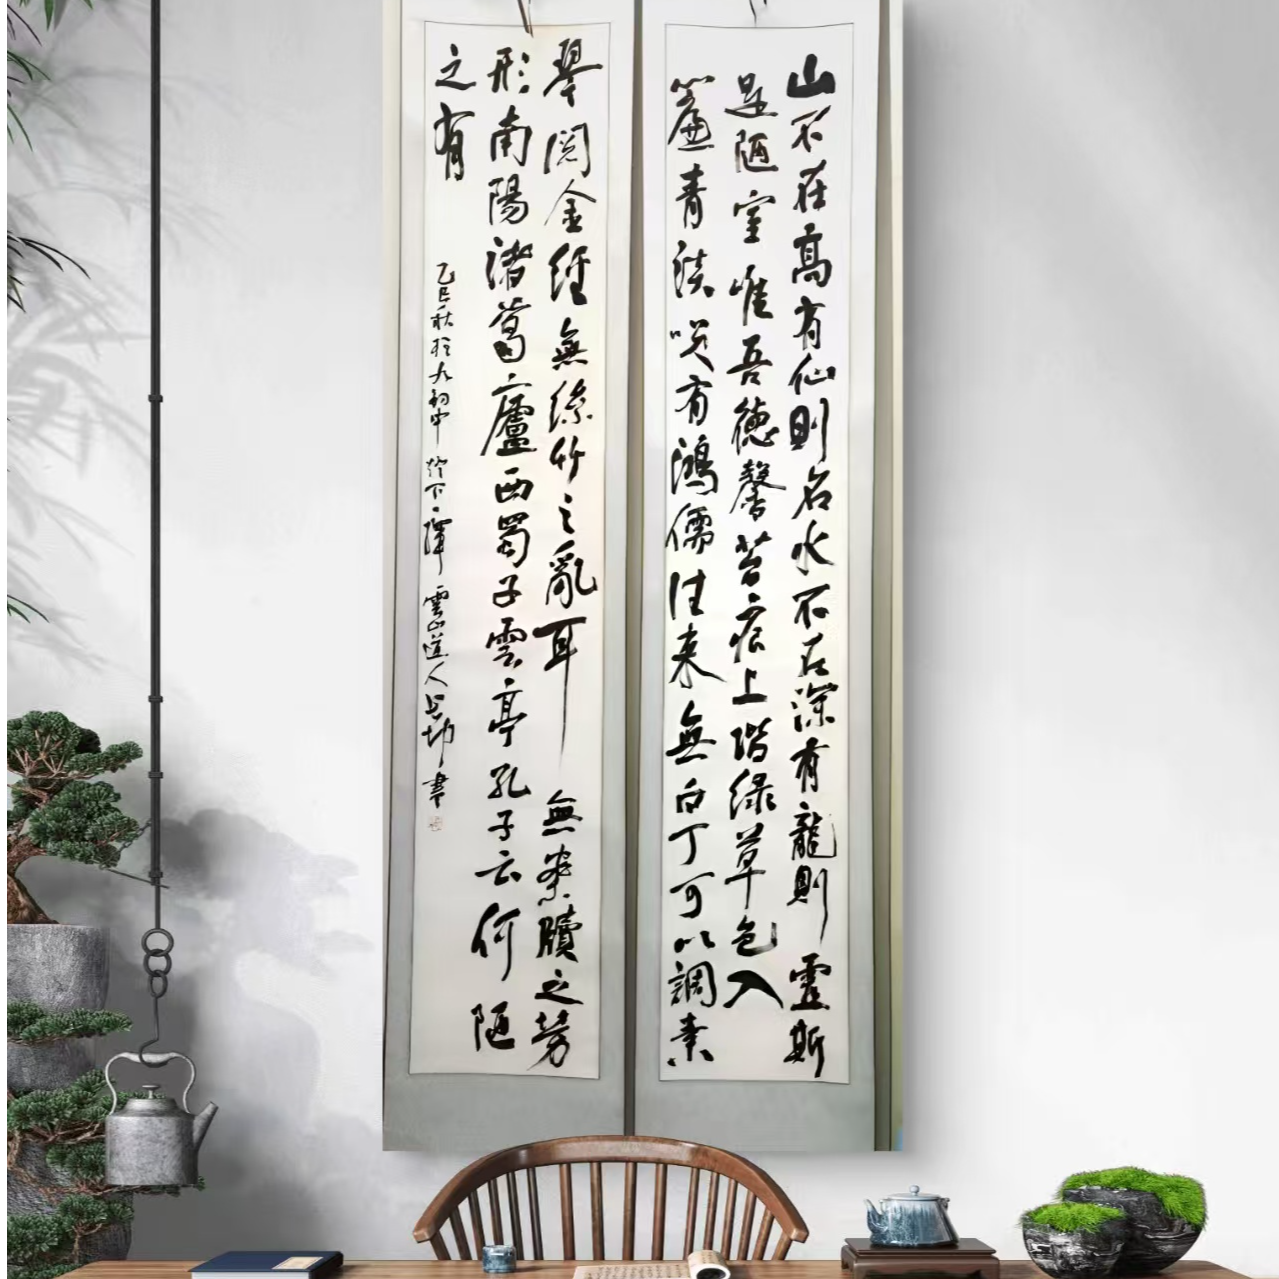 山不在高有仙則名水不在深有龍則靈斯
是陋室惟吾德馨苔痕上階綠草色入
簾青談笑有鴻儒往来無白丁可以調素
琴閱金經無絲竹之亂耳無案牘之勞
形南陽諸葛廬西蜀子雲亭孔子云何陋
之有
乙巳秋於 雲山道人 書